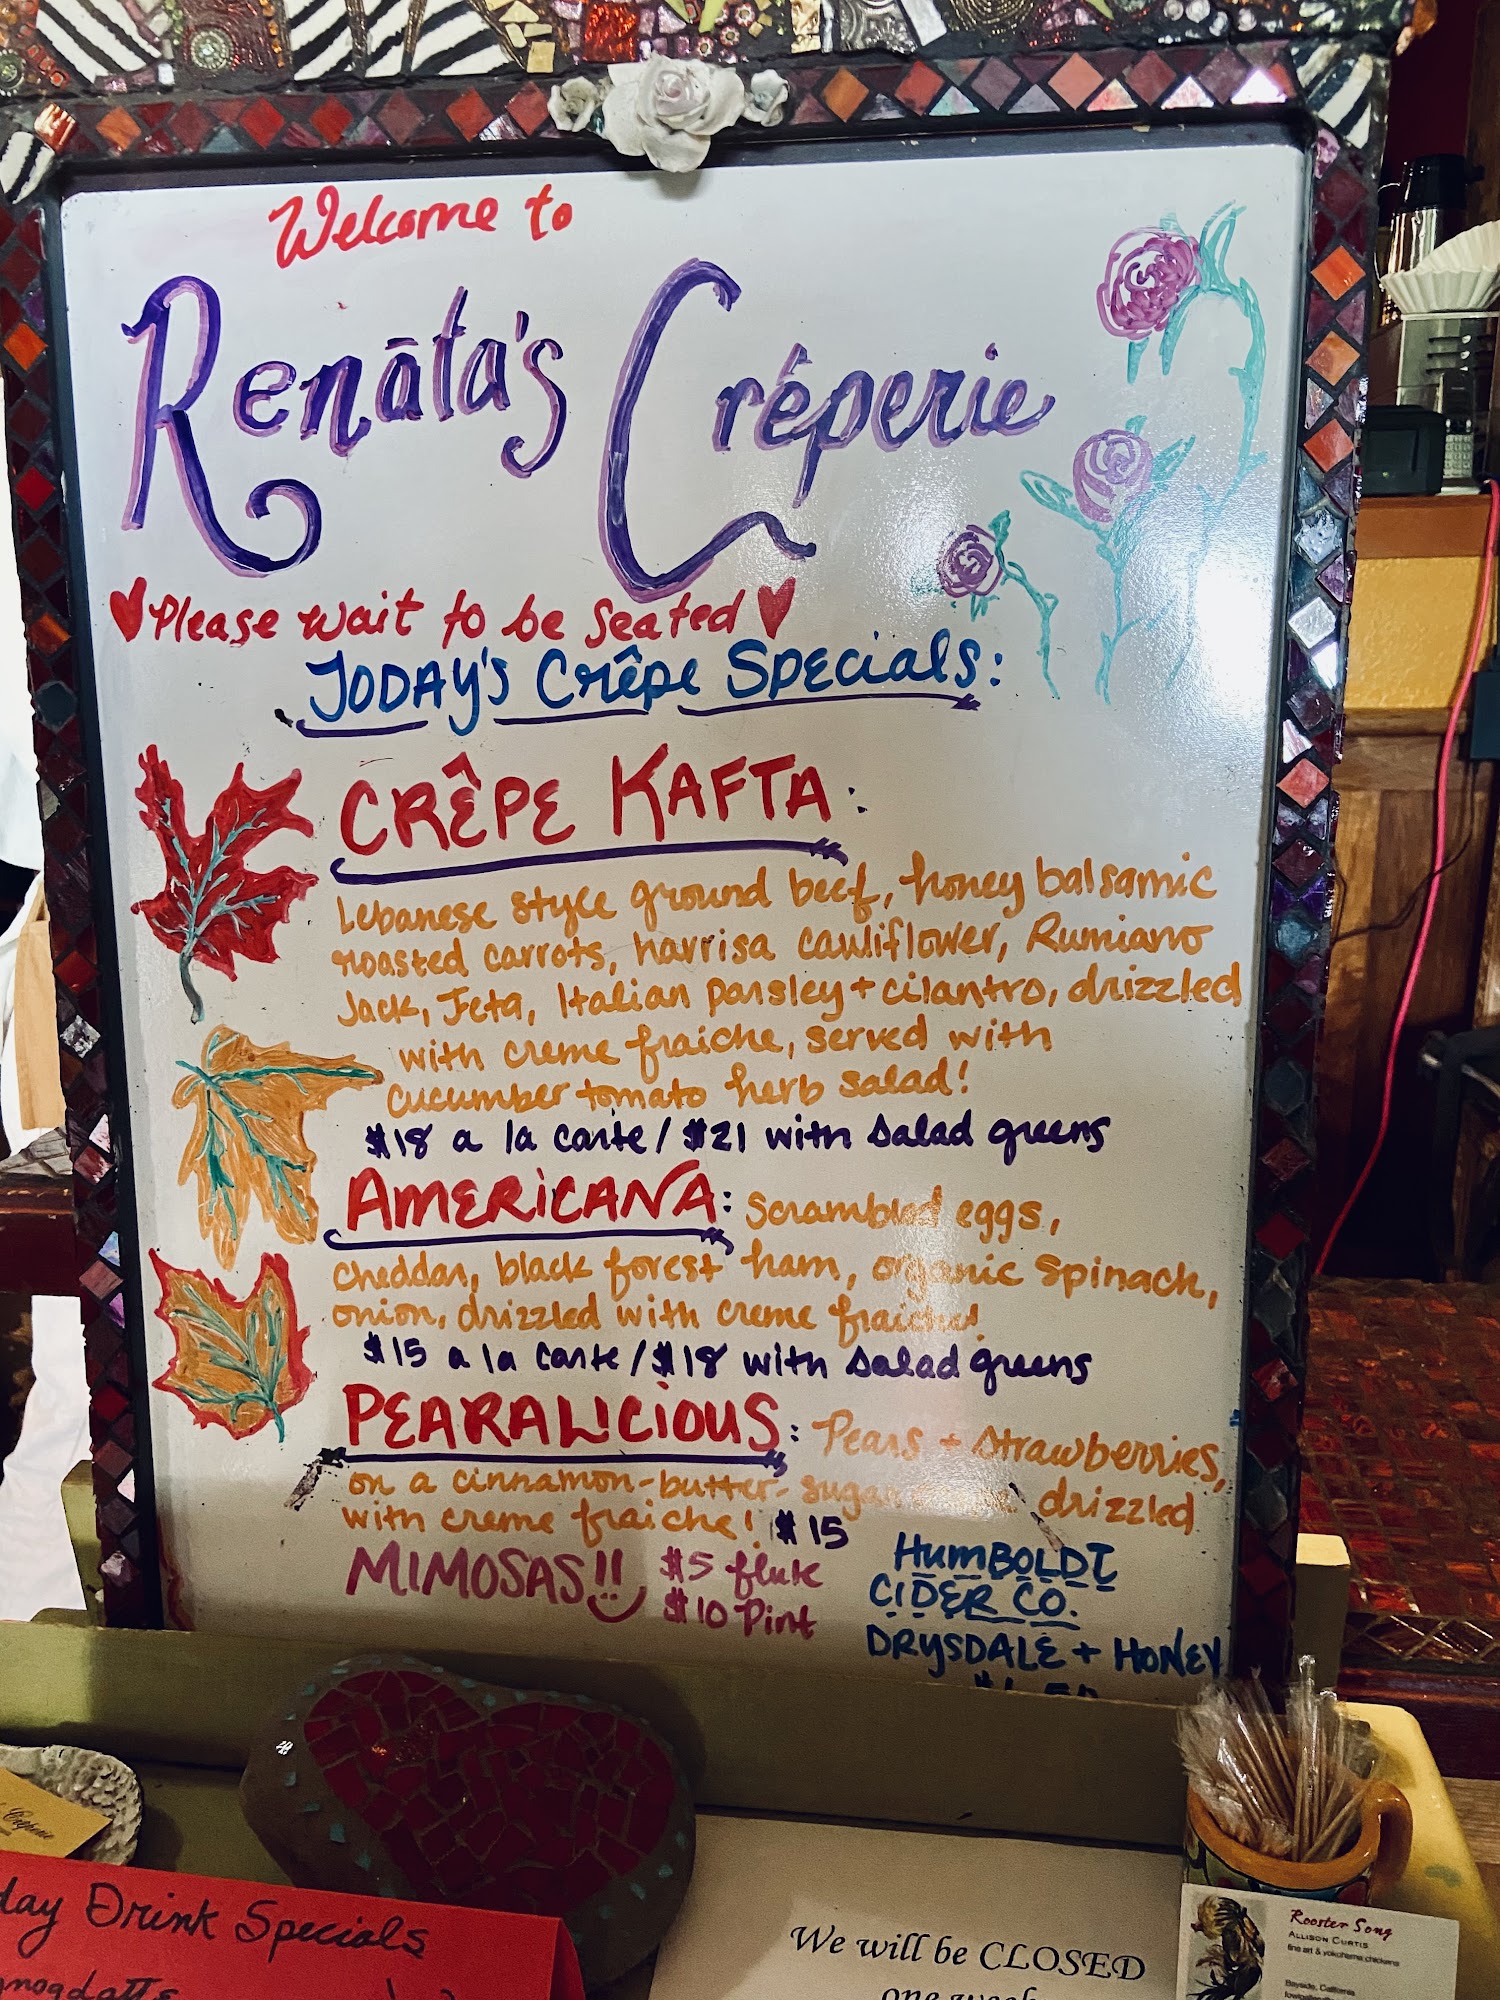 Welcome to
Renāta's Crêperie
Please wait to be seated
TODAY'S Crêpe SPECIALS:
CRÊPE KAFTA:
Lebanese style ground beef, honey balsamic
roasted carrots, harrisa cauliflower, Rumiano
Jack, Feta, Italian parsley + cilantro, drizzled
with creme fraiche, served with
cucumber tomato herb salad!
$18 a la carte / $21 with salad greens
AMERICANA: Scrambled eggs,
cheddar, black forest ham, organic spinach,
onion, drizzled with creme fraiche!
$15 a la carte / $18 with salad greens
PEARALICIOUS: Pears + strawberries,
on a cinnamon-butter-sugar drizzled
with creme fraiche! $15
MIMOSAS!! $5 flute
$10 Pint
HUMBOLDT
CIDER CO.
DRYSDALE + HONEY
day Drink Specials
We will be CLOSED
one week
Rooster Song
ALLISON CURTIS
fine art & yokohama chickens
Bayside, California